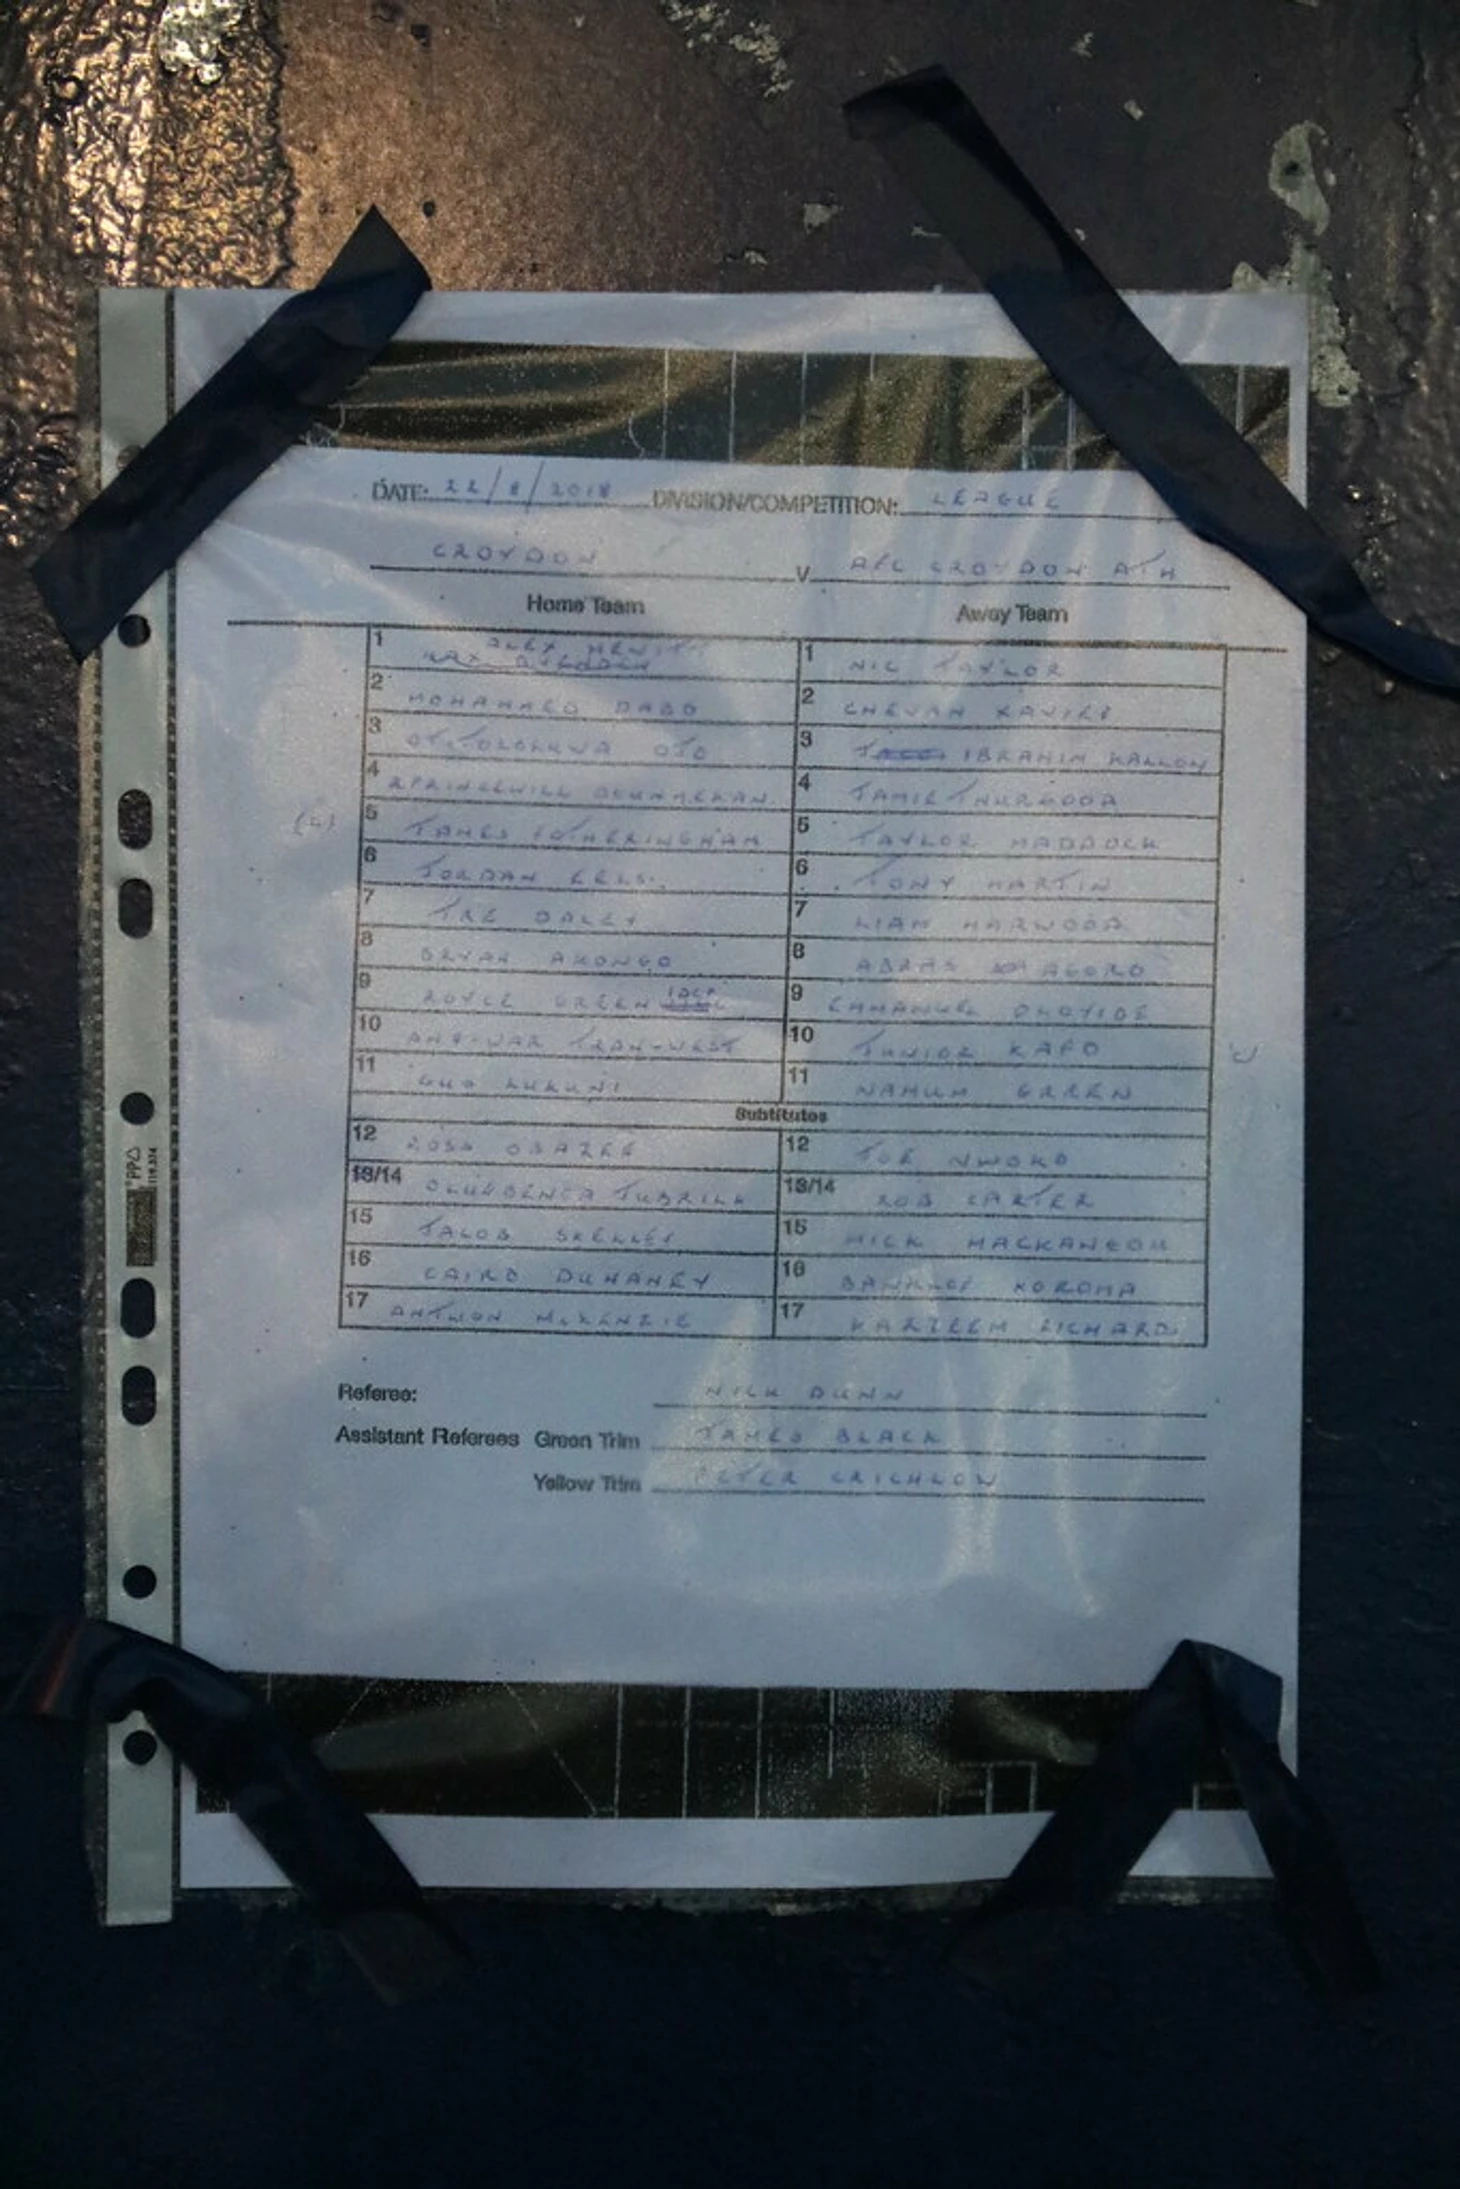 DATE: 22/8/2018 DIVISION/COMPETITION: LEAGUE
CROYDON V A/C CROYDON ATH
Home Team Away Team
1 ALEX 1 NIC TAYLOR
2 MOHAMMED DABO 2 CHEVAN XAVIER
3 OJO 3 IBRAHIM KALLON
4 4 JAMIE THURGOOD
(C) 5 JAMES FOTHERINGHAM 5 TAYLOR MADDOCK
6 JORDAN 6 TONY MARTIN
7 TRE DALEY 7 LIAM HARWOOD
8 BRYAN AKONGO 8 AGORO
9 ROYCE GREEN 9 EMMANUEL
10 TRAN-WEST 10 JUNIOR KAFO C
11 11 NAHUM GREEN
Subtitutes
12 OBAZEE 12 JOE NWOKO
13/14 OLUGBENGA JUBRILH 13/14 ROB CARTER
15 JACOB SKELLEY 15 MICK
16 CAIRO DUHANEY 16 KOROMA
17 ANTWON McKENZIE 17 KARIEEM RICHARDS
Referee: NICK DUNN
Assistant Referees Green Trim JAMES BLACK
Yellow Trim PETER CRICHLOW
PP